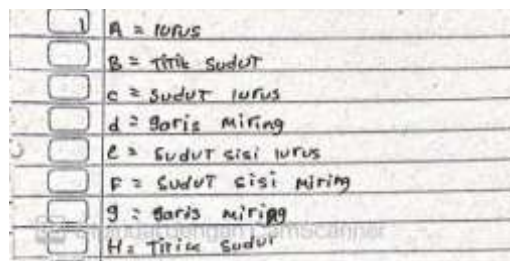 1 A = lurus
B = Titik sudut
c = sudut lurus
d = garis miring
e = sudut sisi lurus
F = sudut sisi miring
g = garis miring
H = Titik sudut
dengan CamScanner